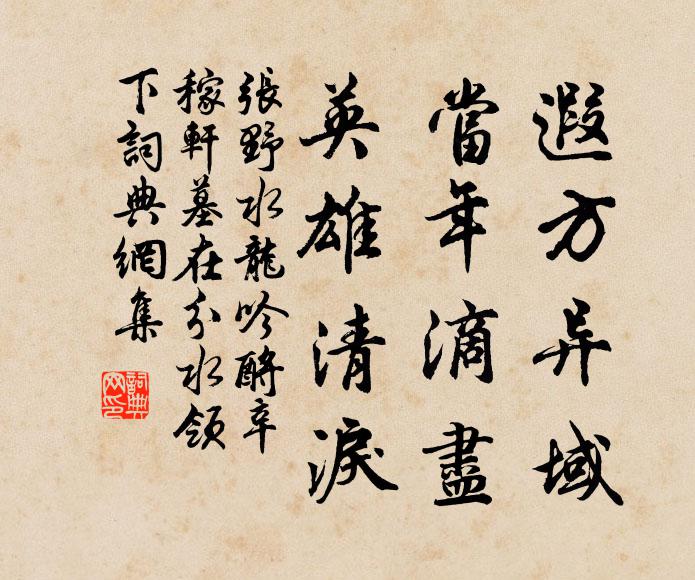 遐方异域
當年滴盡
英雄清淚
張野水龍吟酹辛
稼軒墓在分水領
下詞典網集
詞典
网印